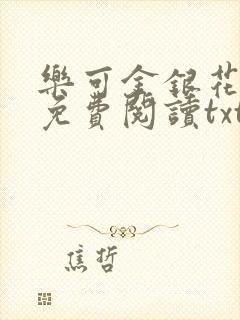 樂可金銀花
免費閱讀txt
焦哲